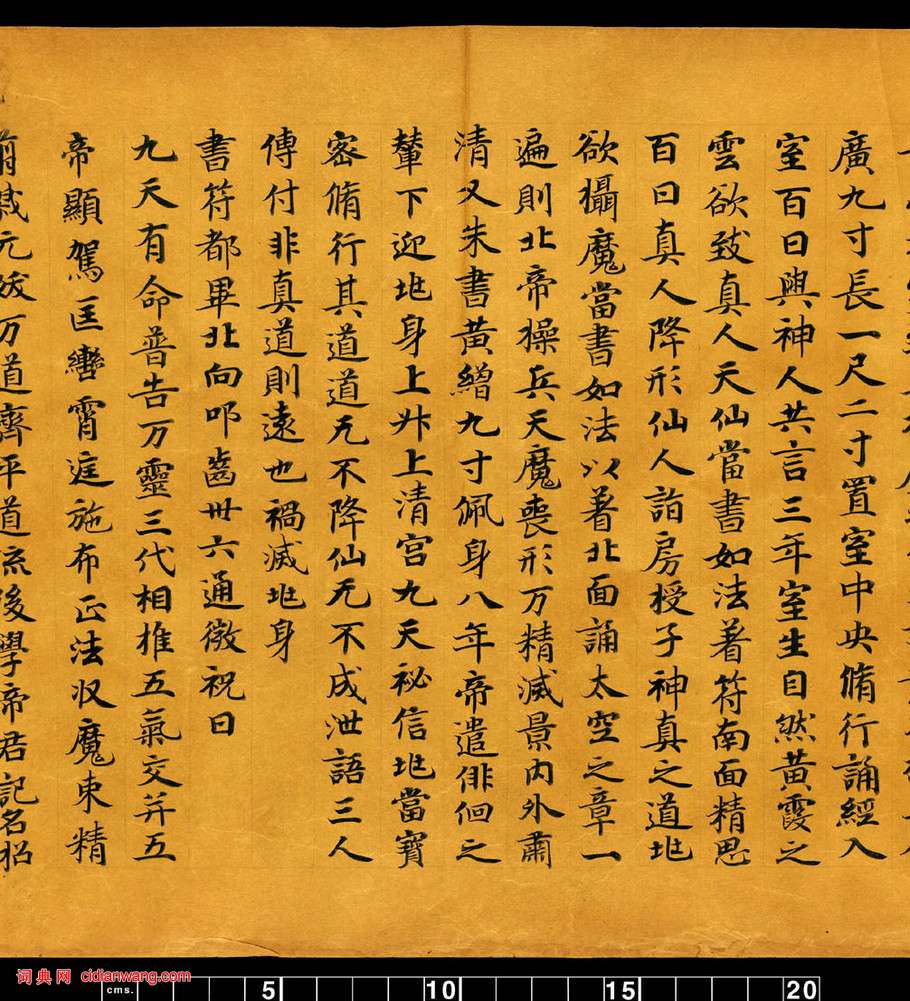 廣九寸長一尺二寸置室中央脩行誦經入
室百日與神人共言三年室生自然黃霞之
雲欲致真人天仙當書如法著符南面精思
百日真人降形仙人詣房授子神真之道兆
欲攝魔當書如法以著北面誦太空之章一
遍則北帝操兵天魔喪形万精滅景內外肅
清又朱書黃繒九寸佩身八年帝遣俳佪之
輦下迎兆身上升上清宮九天祕信兆當寶
密脩行其道道无不降仙无不成泄語三人
傳付非真道則遠也禍滅兆身
書符都畢北向叩齒卅六通微祝曰
九天有命普告万靈三代相推五氣交并五
帝顯駕匡轡霄庭施布正法收魔束精
万道齊平道流後學帝君記名
词典网 cidianwang.com
cms. 5 10 15 20